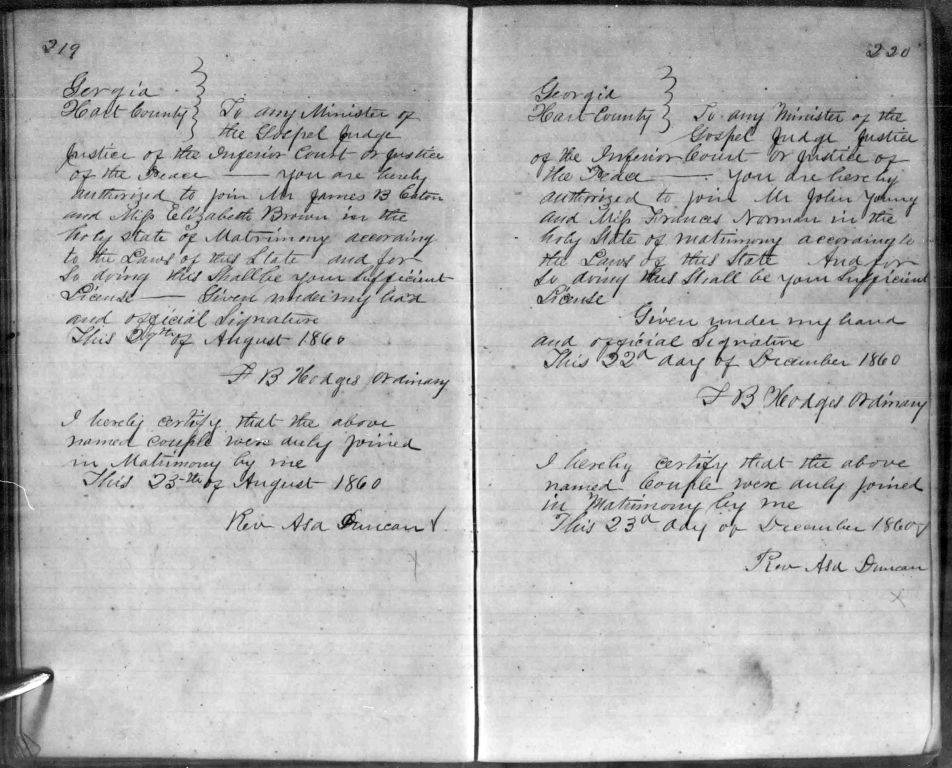 219
Georgia
Hart County } To any Minister of
the Gospel Judge
Justice of the Inferior Court or Justice
of the Peace — you are hereby
authorized to join Mr James B Eaton
and Miss Elizabeth Brown in the
holy state of Matrimony according
to the Laws of this State and for
So doing this Shall be your Sufficient
License — Given under my hand
and official Signature
This 29th of August 1860
F B Hodges Ordinary
I hereby certify that the above
named couple were duly joined
in Matrimony by me
This 23th of August 1860
Rev Asa Duncan
220
Georgia
Hart County } To any Minister of the
Gospel Judge Justice
of the Inferior Court or Justice of
the Peace — You are hereby
authorized to join Mr John Young
and Miss Frances Norman in the
holy State of matimony according to
the Laws of this State And for
So doing this Shall be your Sufficient
License
Given under my hand
and official Signature
This 22d day of December 1860
F B Hodges Ordinary
I hereby certify that the above
named Couple were duly joined
in Matimony by me
This 23d day of December 1860
Rev Asa Duncan